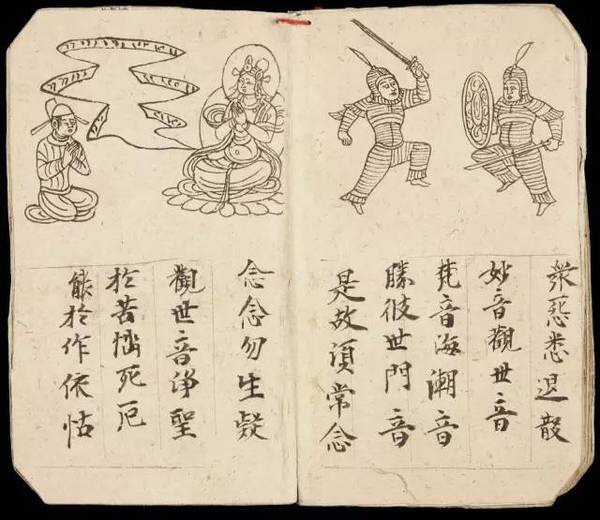 衆怨悉退散
妙音觀世音
梵音海潮音
勝彼世門音
是故須常念
念念勿生疑
觀世音淨聖
於苦惱死厄
能於作依怙